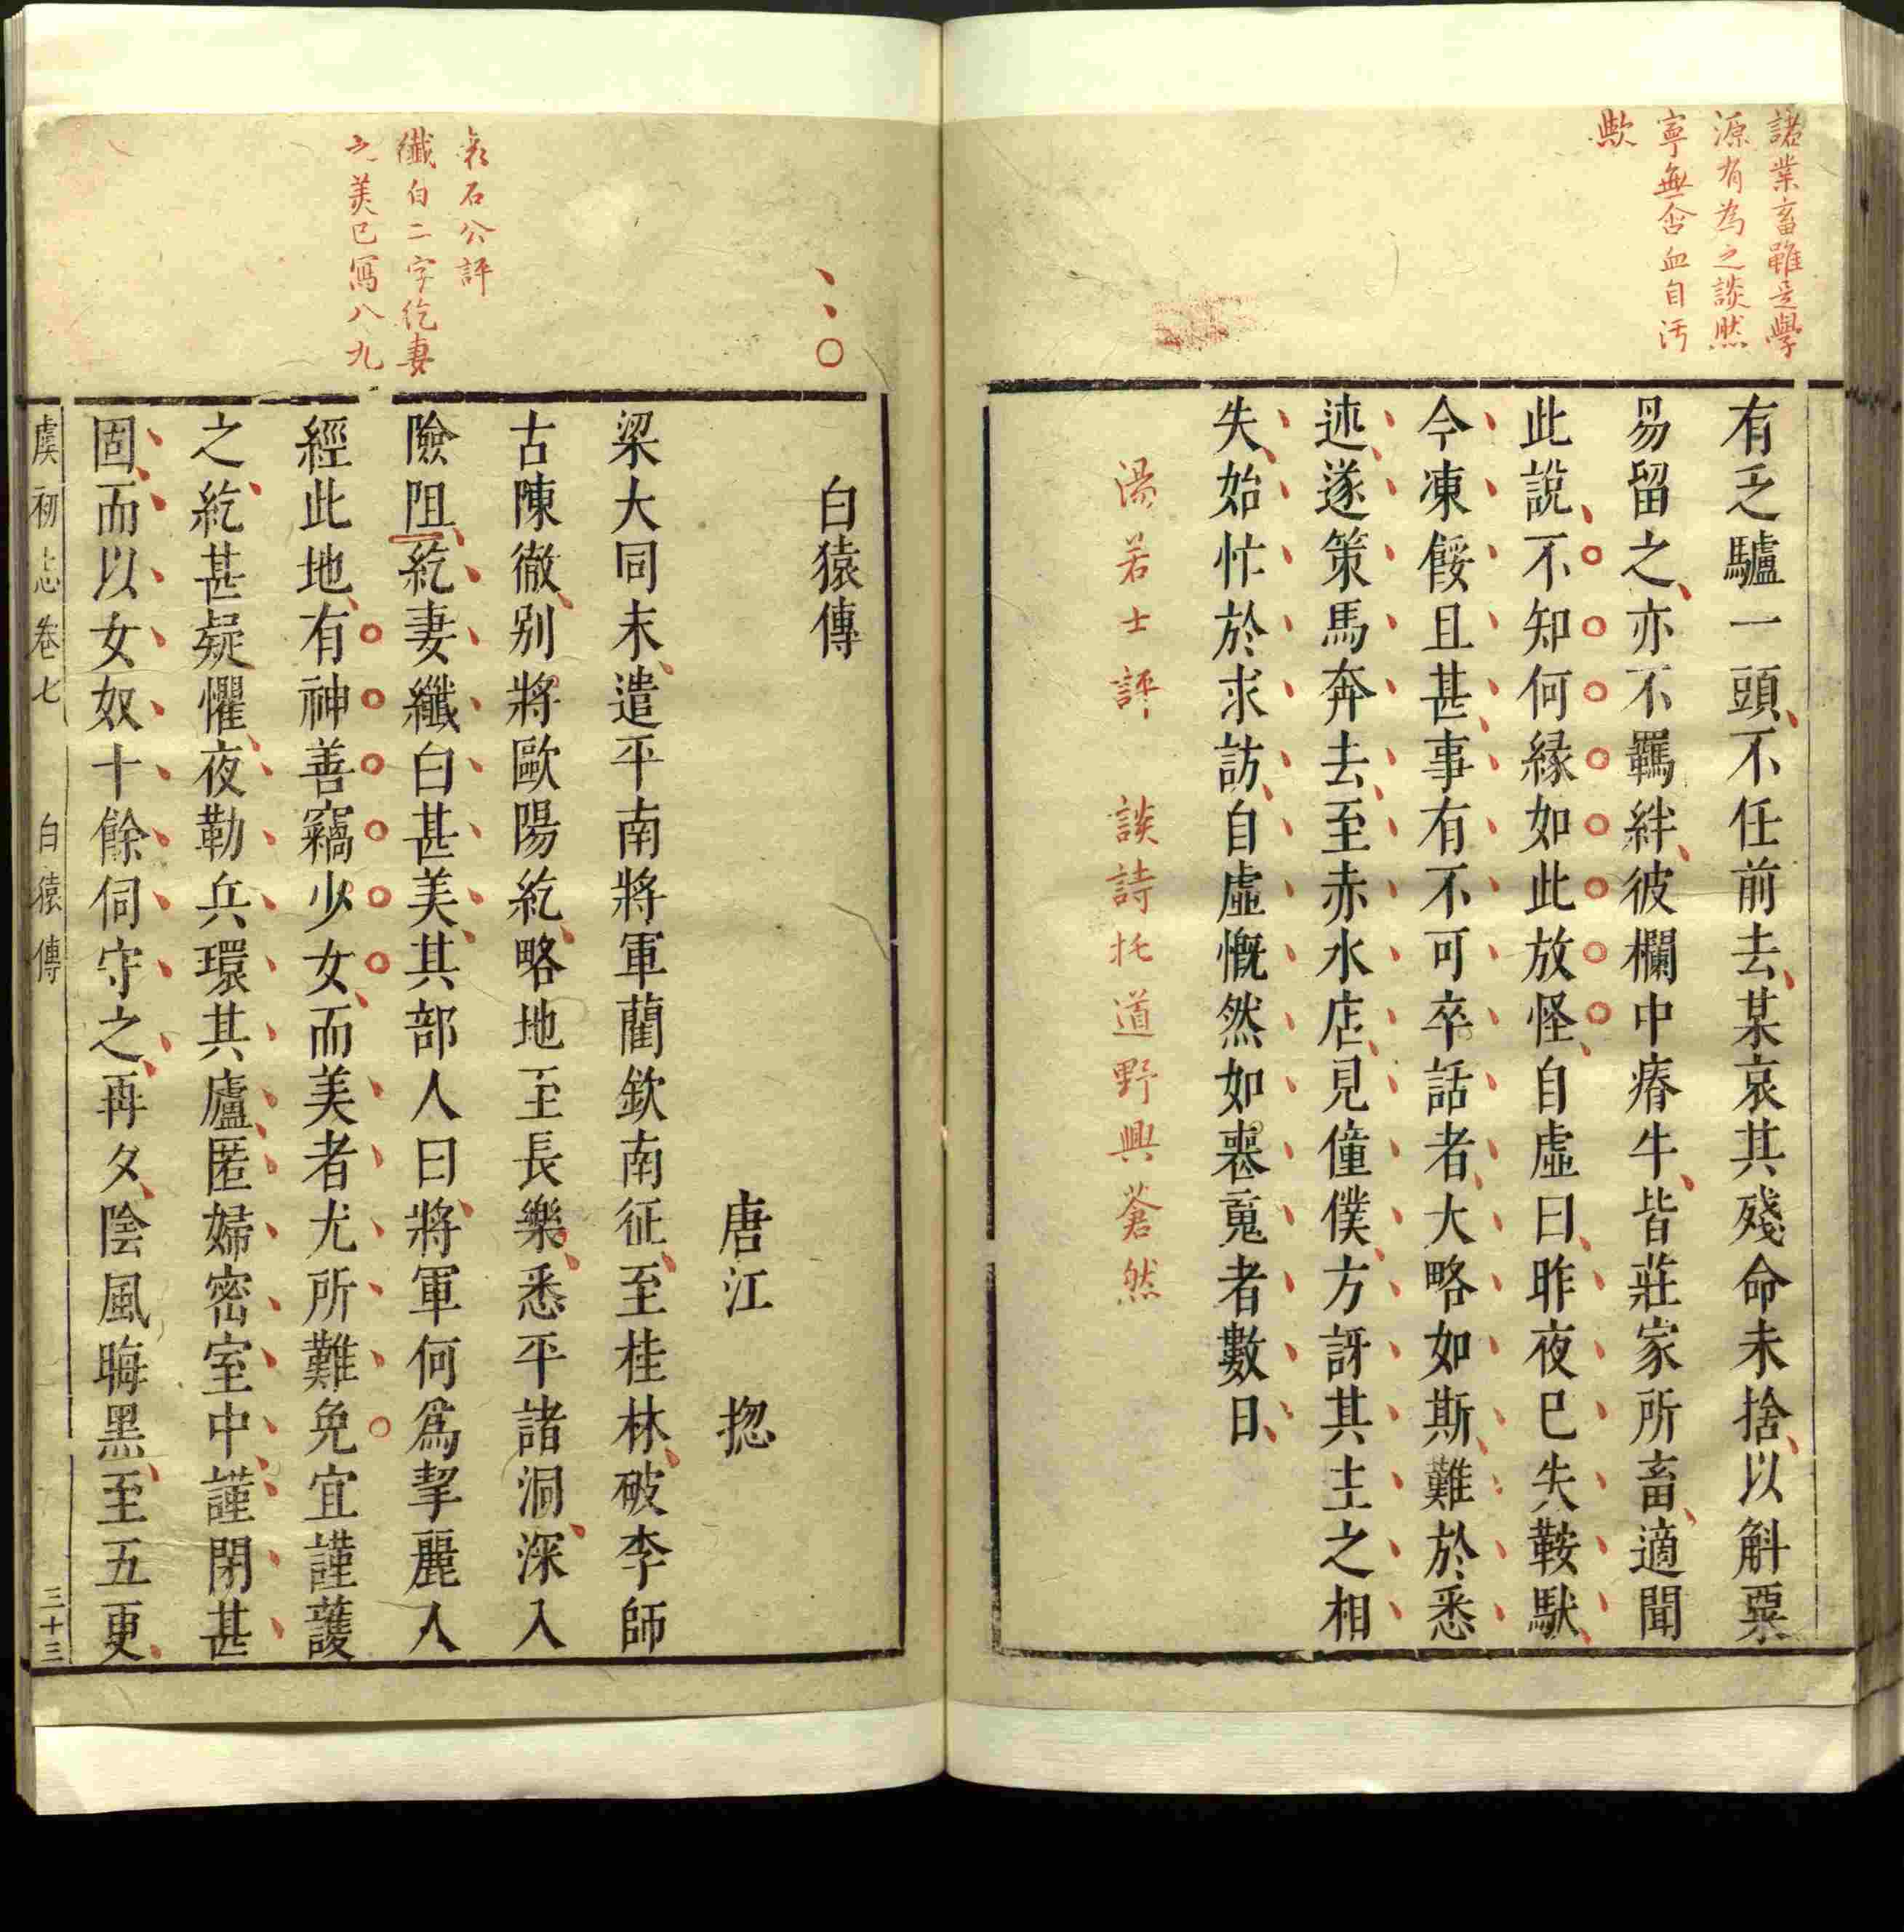 諸業畜雖是學
源有為之談然
寧無含血自汚
歟
有乏驢一頭不任前去某哀其殘命未捨以斛粟
易留之亦不羈絆彼欄中瘠牛皆莊家所畜適聞
此說不知何緣如此放怪自虛曰昨夜已失鞍馱
今凍餒且甚事有不可卒話者大略如斯難於悉
述遂策馬奔去至赤水店見僮僕方訝其主之相
失始忙於求訪自虛慨然如喪䰟者數日
湯若士評 談詩托道野興蒼然
袁石公評
纖白二字紇妻
之美已寫八九
白猿傳
唐江 揔
梁大同末遣平南將軍藺欽南征至桂林破李師
古陳徹别將歐陽紇略地至長樂悉平諸洞深入
險阻紇妻纖白甚美其部人曰將軍何爲挈麗人
經此地有神善竊少女而美者尤所難免宜謹護
之紇甚疑懼夜勒兵環其廬匿婦密室中謹閉甚
固而以女奴十餘伺守之再夕陰風晦黑至五更
虞初志卷七 白猿傳 三十三